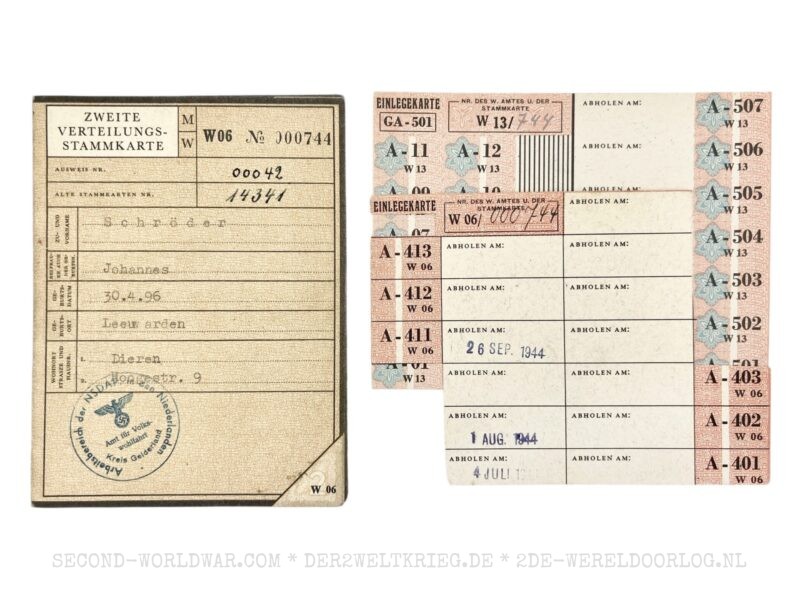 ZWEITE
VERTEILUNGS-
STAMMKARTE
M
W
W06 № 000744
AUSWEIS NR.
00042
ALTE STAMMKARTEN NR.
14341
ZU- UND
VORNAME
Schröder
Johannes
GE-
BURTS-
DATUM
30.4.96
GE-
BURTS-
ORT
Leeuwarden
WOHNORT
STRASSE UND
HAUSNR.
1. Dieren
2. str. 9
Arbeitsbereich der NSDAP in den Niederlanden
Amt für Volks-
wohlfahrt
Kreis Gelderland
W 06
EINLEGEKARTE
GA-501
NR. DES W. AMTES U. DER
STAMMKARTE
W 13/744
ABHOLEN AM:
A-507
W 13
A-11
W 13
A-12
W 13
ABHOLEN AM:
A-506
W 13
09
10
ABHOLEN AM:
A-505
W 13
07
A-504
W 13
A-503
W 13
A-502
W 13
501
01
W 13
EINLEGEKARTE
NR. DES W. AMTES U. DER
STAMMKARTE
W 06/000744
ABHOLEN AM:
A-413
W 06
ABHOLEN AM:
ABHOLEN AM:
A-412
W 06
ABHOLEN AM:
ABHOLEN AM:
A-411
W 06
ABHOLEN AM:
26 SEP. 1944
ABHOLEN AM:
ABHOLEN AM:
A-403
W 06
ABHOLEN AM:
1 AUG. 1944
ABHOLEN AM:
A-402
W 06
ABHOLEN AM:
4 JULI 1
ABHOLEN AM:
A-401
W 06
SECOND-WORLDWAR.COM * DER2WELTKRIEG.DE * 2DE-WERELDOORLOG.NL